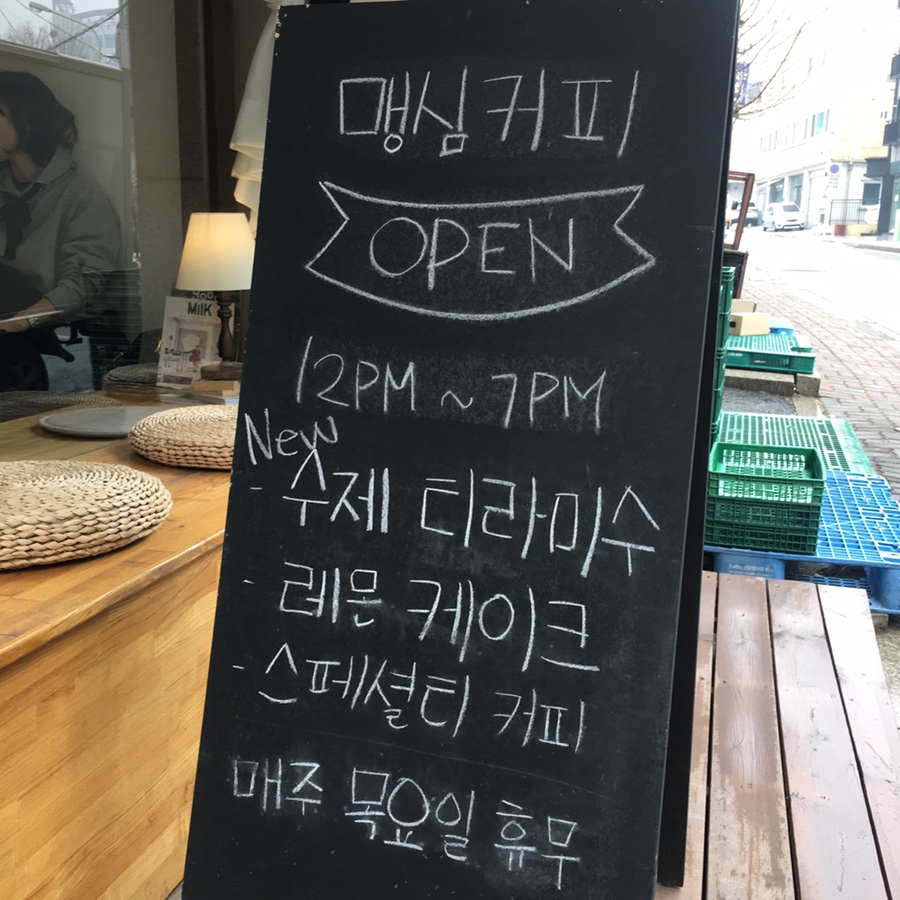 맹심커피
OPEN
12PM ~ 7PM
New
- 수제 티라미수
- 레몬 케이크
- 스페셜티 커피
매주 목요일 휴무
MilK